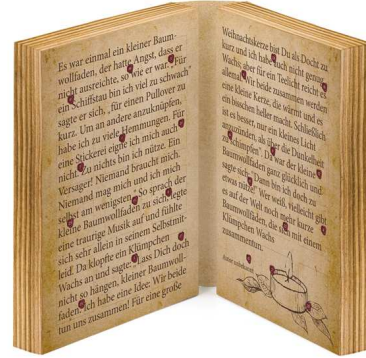 Es war einmal ein kleiner Baum-
wollfaden, der hatte Angst, dass er
nicht ausreichte, so wie er war. „Für
ein Schiffstau bin ich viel zu schwach“
sagte er sich, „für einen Pullover zu
kurz. Um an andere anzuknüpfen,
habe ich zu viele Hemmungen. Für
eine Stickerei eigne ich mich auch
nicht. Zu nichts bin ich nütze. Ein
Versager! Niemand braucht mich.
Niemand mag mich und ich mich
selbst am wenigsten.“ So sprach der
kleine Baumwollfaden zu sich, legte
eine traurige Musik auf und fühlte
sich sehr allein in seinem Selbstmit-
leid. Da klopfte ein Klümpchen
Wachs an und sagte: „Lass Dich doch
nicht so hängen, kleiner Baumwoll-
faden. Ich habe eine Idee: Wir beide
tun uns zusammen! Für eine große
Weihnachtskerze bist Du als Docht zu
kurz und ich habe auch nicht genug
Wachs, aber für ein Teelicht reicht es
allemal! Wir beide zusammen werden
eine kleine Kerze, die wärmt und es
ein bisschen heller macht. Schließlich
ist es besser, nur ein kleines Licht
anzuzünden, als über die Dunkelheit
zu schimpfen“. Da war der kleine
Baumwollfaden ganz glücklich und
sagte sich: Dann bin ich doch zu
etwas nütze! Wer weiß, vielleicht gibt
es auf der Welt noch mehr kurze
Baumwollfäden, die sich mit einem
Klümpchen Wachs
zusammentun.